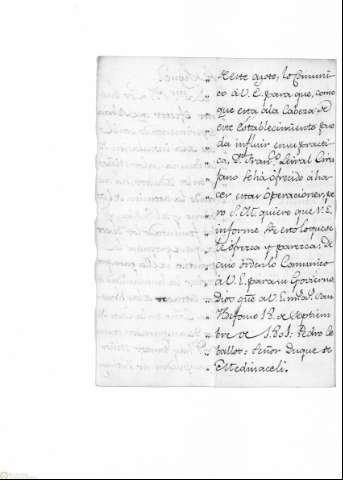 „ á este ajeto, lo Comuni
„ co á V. E. para que, como
„ que está á la Cabeza de
„ este establecimiento pue
„ da influir en su practi
„ ca, Dn. Fran.co Leiral Ciru
„ jano se há ofrecido á ha
„ cer estas Operaciones, pe
„ ro S. M. quiere que V. E.
„ informe de esto lo que se
„ le ofrezca y parezca; de
„ cuio órden lo Comunico
„ á V. E. para su Govierno
„ Dios gue. á V. E. m.s a.s San
„ Ildefonso 18. de Septiem
„ bre de 1801. Pedro Ce
„ ballos = Señor Duque de
„ Medinaceli.